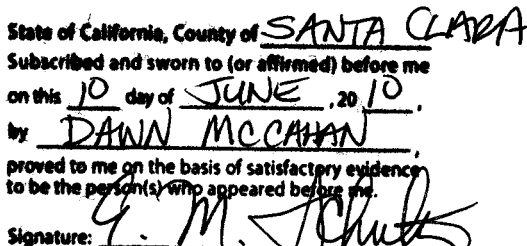 State of California, County of SANTA CLARA
Subscribed and sworn to (or affirmed) before me
on this 10 day of JUNE, 2010,
by DAWN MCCAHAN
proved to me on the basis of satisfactory evidence
to be the person(s) who appeared before me.
Signature: E. M. Schultz